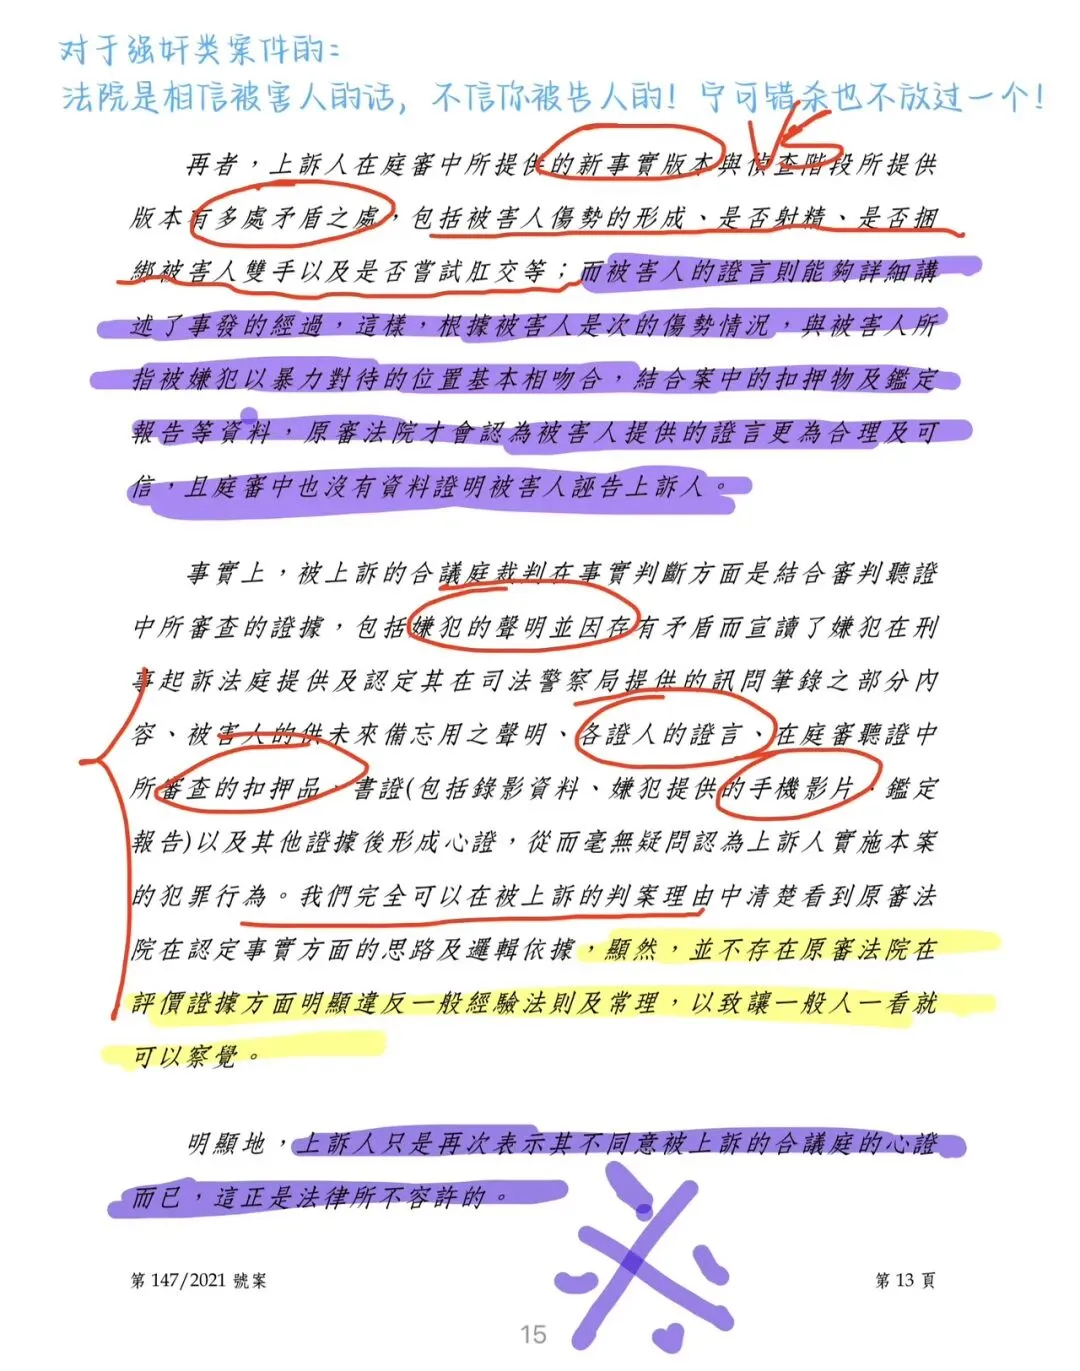 对于强奸类案件的：
法院是相信被害人的话，不信你被告人的！宁可错杀也不放过一个！
VS
再者，上訴人在庭審中所提供的新事實版本與偵查階段所提供
版本有多處矛盾之處，包括被害人傷勢的形成、是否射精、是否捆
綁被害人雙手以及是否嘗試肛交等；而被害人的證言則能夠詳細講
述了事發的經過，這樣，根據被害人是次的傷勢情況，與被害人所
指被嫌犯以暴力對待的位置基本相吻合，結合案中的扣押物及鑑定
報告等資料，原審法院才會認為被害人提供的證言更為合理及可
信，且庭審中也沒有資料證明被害人誣告上訴人。
事實上，被上訴的合議庭裁判在事實判斷方面是結合審判聽證
中所審查的證據，包括嫌犯的聲明並因存有矛盾而宣讀了嫌犯在刑
事起訴法庭提供及認定其在司法警察局提供的訊問筆錄之部分內
容、被害人的供未來備忘用之聲明、各證人的證言、在庭審聽證中
所審查的扣押品、書證(包括錄影資料、嫌犯提供的手機影片、鑑定
報告)以及其他證據後形成心證，從而毫無疑問認為上訴人實施本案
的犯罪行為。我們完全可以在被上訴的判案理由中清楚看到原審法
院在認定事實方面的思路及邏輯依據，顯然，並不存在原審法院在
評價證據方面明顯違反一般經驗法則及常理，以致讓一般人一看就
可以察覺。
明顯地，上訴人只是再次表示其不同意被上訴的合議庭的心證
而已，這正是法律所不容許的。
第 147/2021 號案
第 13 頁
15